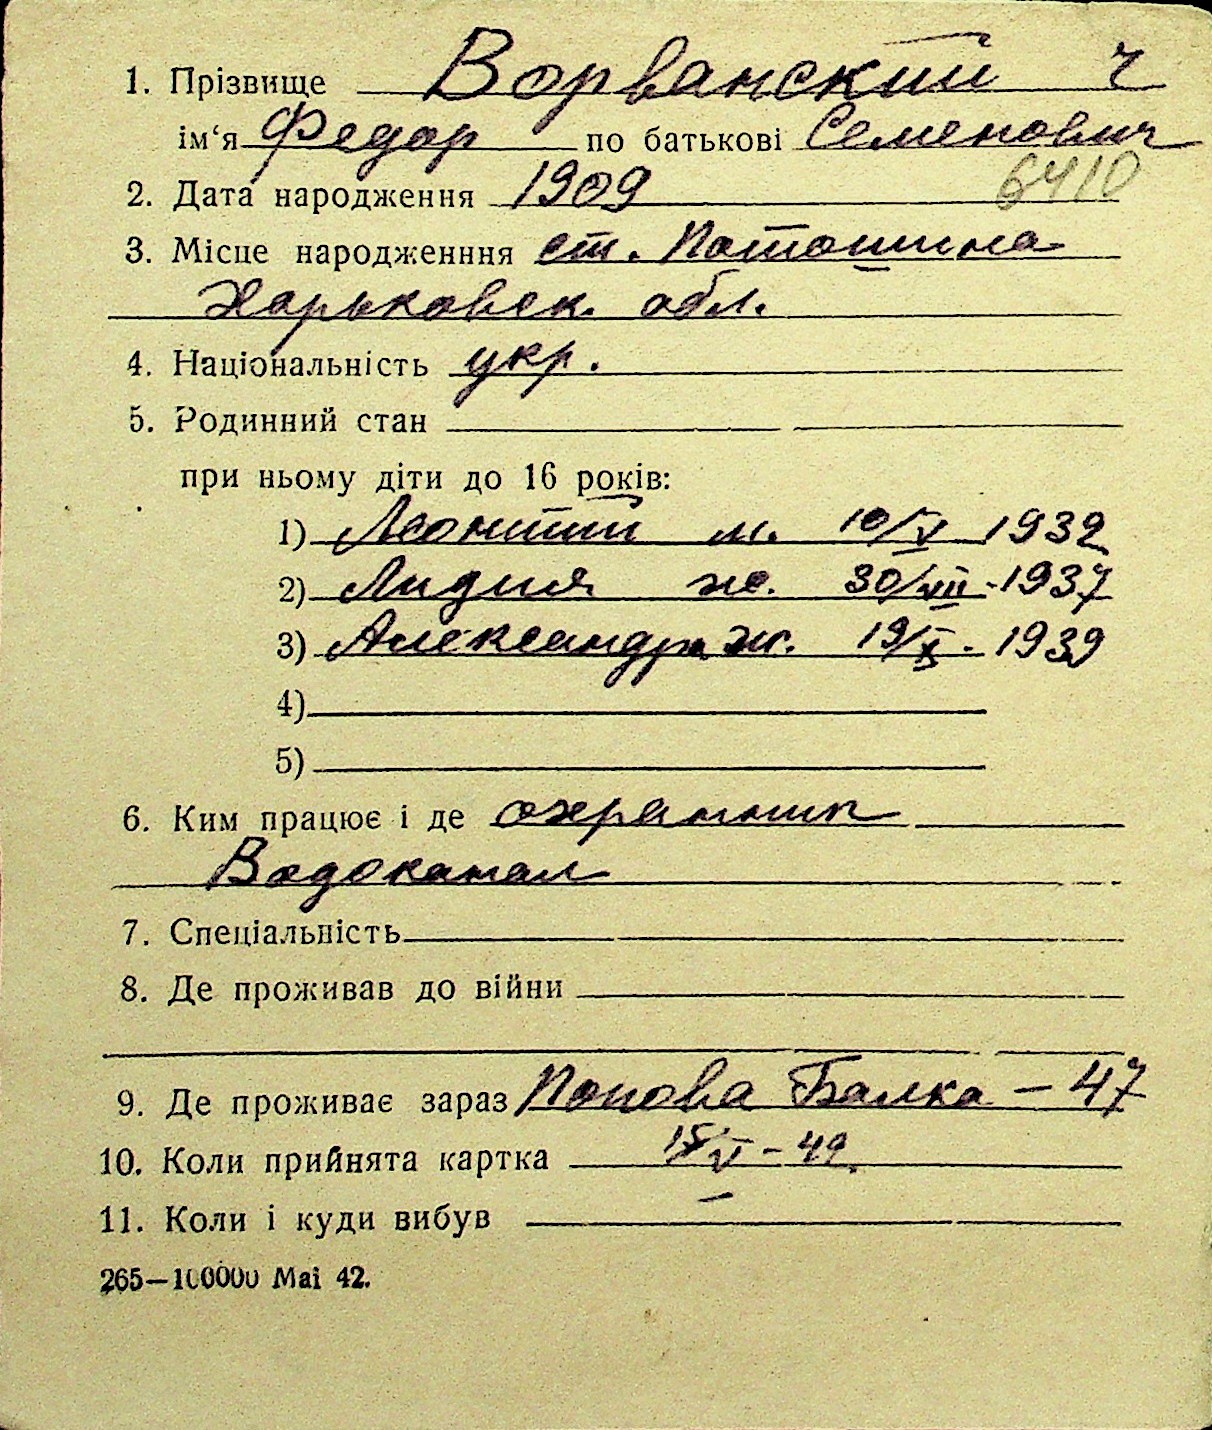 1. Прізвище Ворванский ч
ім‘я Федор по батькові Семенович
2. Дата народження 1909 6410
3. Місце народженння ст.
Харьковск. обл.
4. Національність укр.
5. Родинний стан
при ньому діти до 16 років:
1) Леонтий м. 10/V 1932
2) Лидия ж. 30/VII - 1937
3) Александра ж. 19/X - 1939
4)
5)
6. Ким працює і де охранник
Водоканал
7. Спеціальність
8. Де проживав до війни
9. Де проживає зараз Попова Балка - 47
10. Коли прийнята картка 15/V - 42.
11. Коли і куди вибув
265—100000 Mai 42.